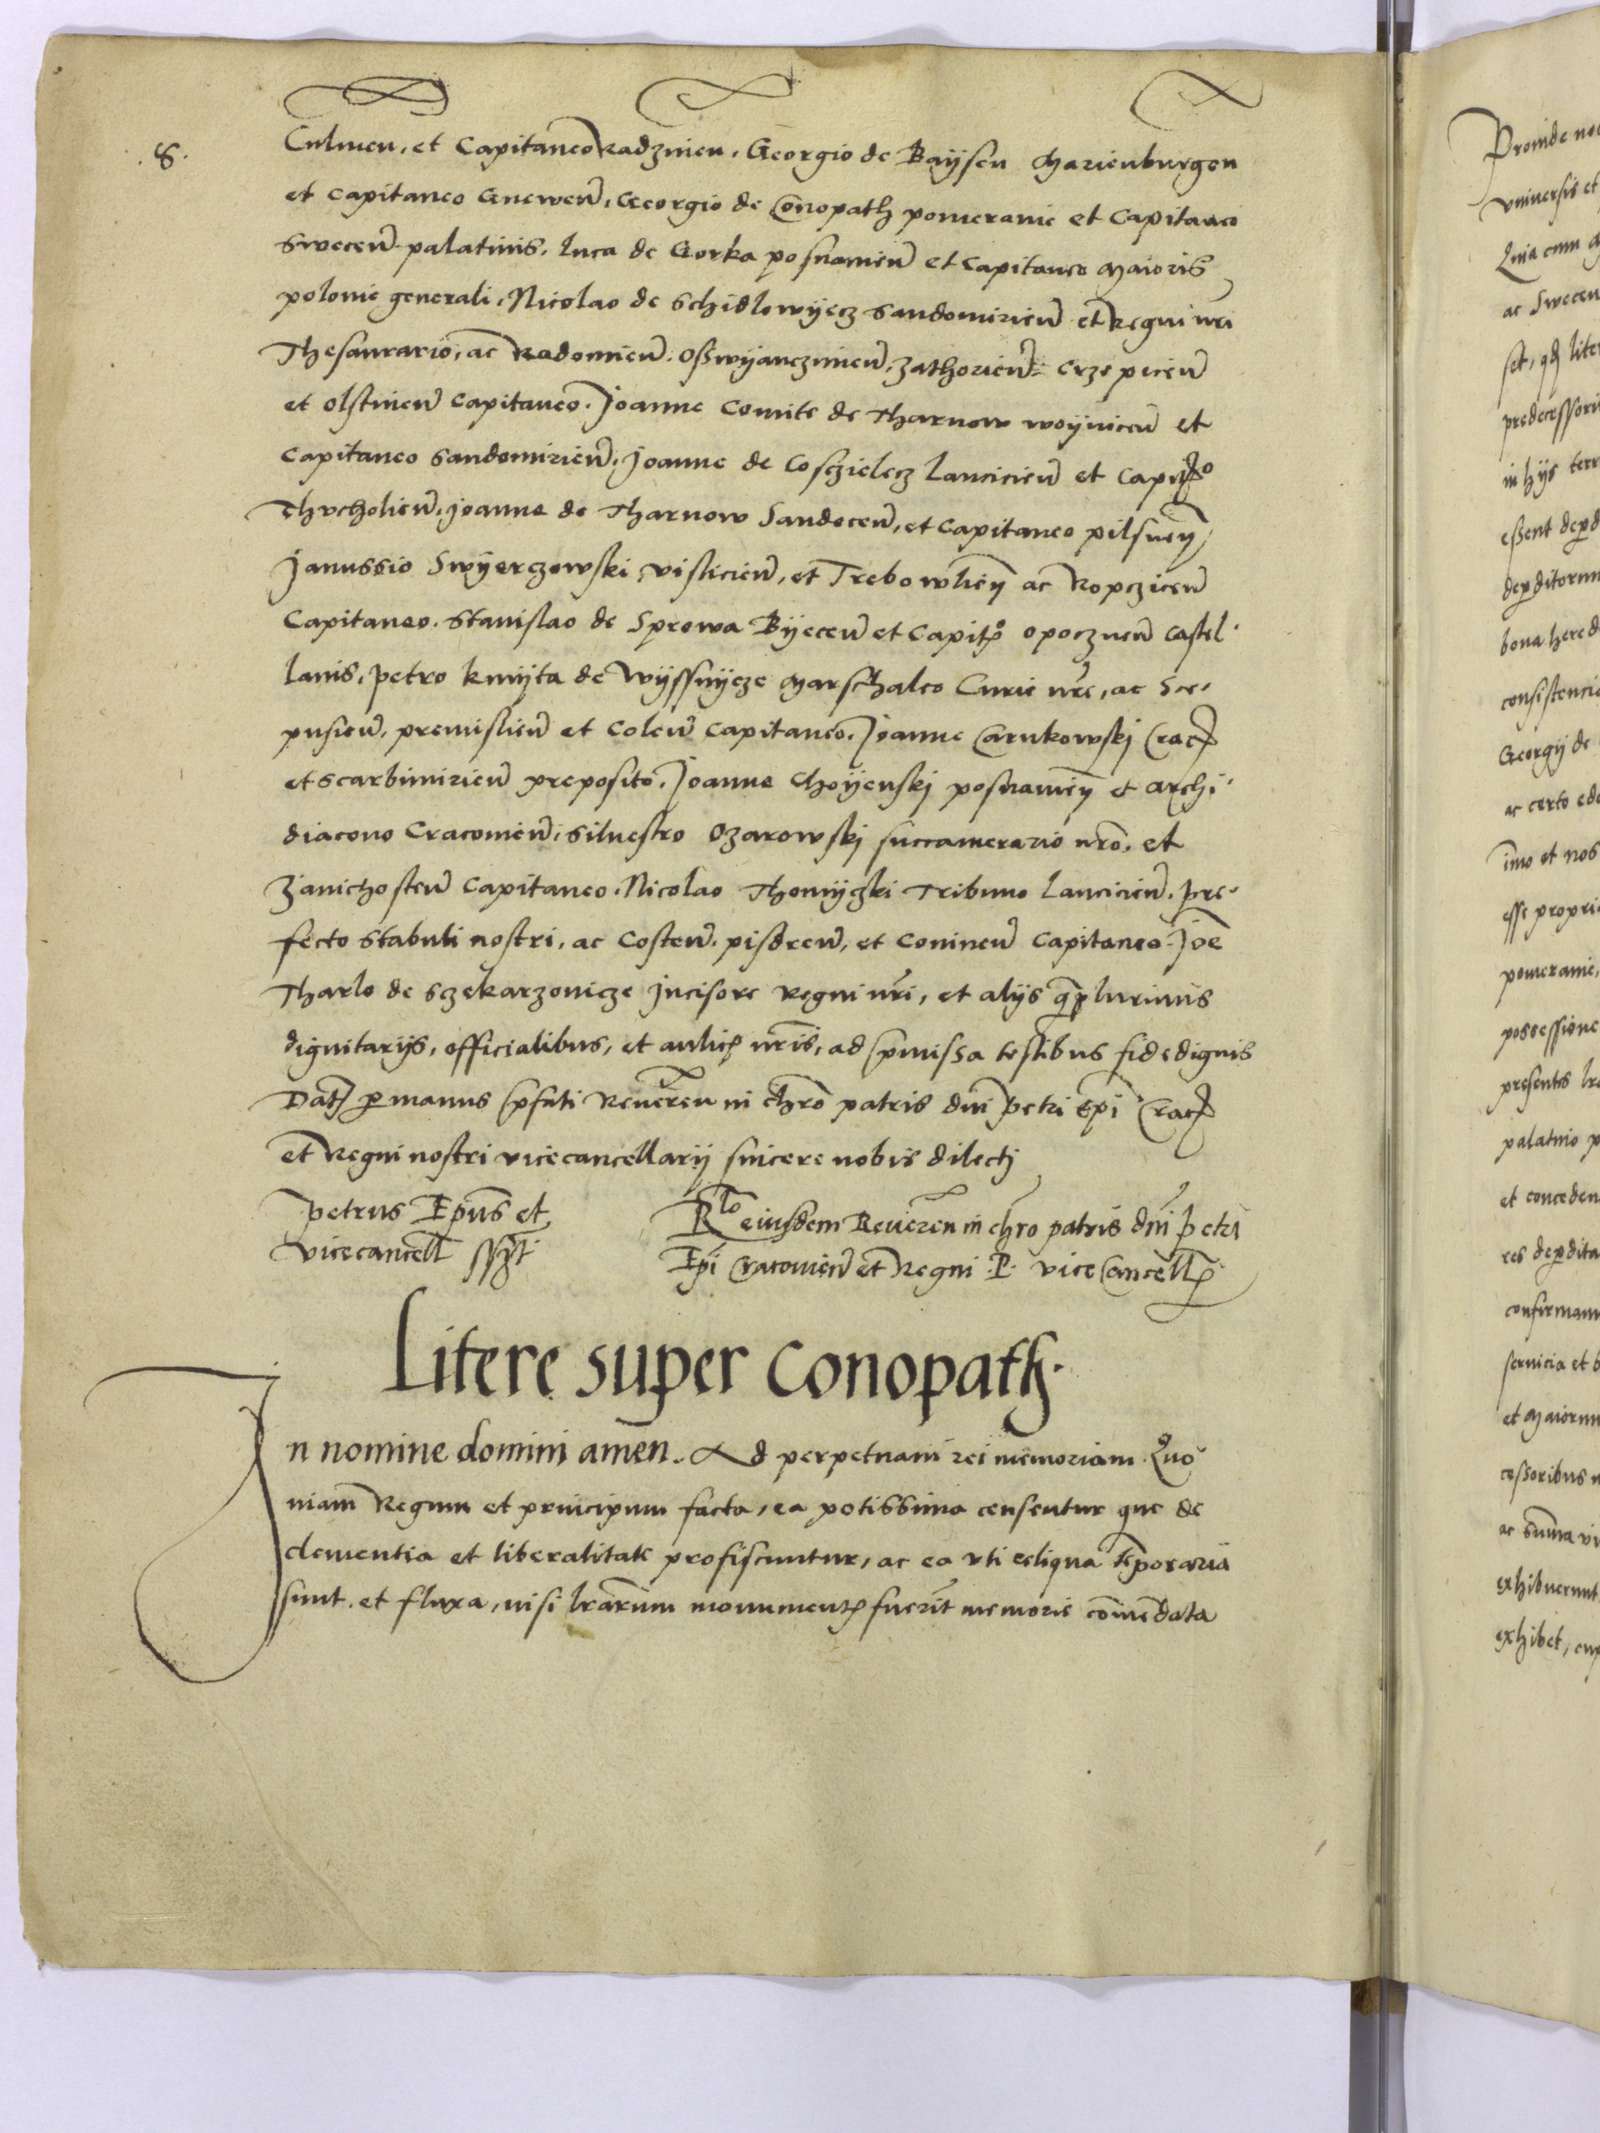 .8.
Culmen, et Capitaneo Radzinen, Georgio de Baysen Marienburgen
et Capitaneo Gneweñ, Georgio de Conopath pomeranie et Capitaneo
Sweceñ palatinis, Luca de Gorka posnanieñ et Capitaneo Maioris
polonie generali, Nicolao de Schidlowyecz Sandomirieñ et Regni nri
Thesaurario, ac Radomieñ. Osswyanczimieñ, Zathorieñ: Crzepiceñ
et Olstineñ Capitaneo. Joanne Comite de Tharnow woyniceñ et
Capitaneo Sandomirieñ, Joanne de Cosczielecz Lancicieñ et Capitº
Thucholieñ, Joanne de Tharnow Sandeceñ, et Capitaneo pilsneñ
Janussio Swyerczowski vislicieñ, et Trebowlieñ ac Ropcziceñ
Capitaneo. Stanislao de Sprowa Byeceñ et Capitº opoczneñ castel-
lanis, Petro kmyta de Wyssnycze Marschalco Curie nre, ac Sce-
pusieñ, premislieñ et Coleñ Capitaneo, Joanne Carnkowskj Crac
et Scarbimirieñ preposito, Joanne Choyenskj posnanieñ et Archi-
diacono Cracovieñ, Silvestro Ozarowskj succamerario nro, et
Zanichosteñ Capitaneo. Nicolao Thomyczki Tribuno Lancicieñ. pre-
fecto Stabuli nostri, ac Costeñ. pisdreñ, et Conineñ Capitaneo. Joe
Tharlo de Sczekarzovicze Incisore Regni nri, et alijs qplurimis
dignitarijs, officialibus, et aulicis nris, ad pmissa testibus fidedignis
Dat p manus pfati Reveren in chro patris dni Petri Epi Crac
et Regni nostri vicecancellarij sincere nobis dilectj
Petrus Epus et
vicecancell sspt
Rlo eiusdem Reveren in chro patris dni Petri
Epi Cracovieñ et Regni .P. viceCancell
Litere super Conopath.
In nomine domini amen. Ad perpetuam rei memoriam. Quo
niam Regum et principum facta, ea potissima censentur que de
clementia et liberalitate profiscuntur, ac ea uti reliqua temporaria
sunt. et fluxa, nisi lrarum monumentis fuerit memorie comendata
Proinde
universis et
Quia cum
ac Swecen
set, qd
predecessori
in hijs terr
essent
deperditorum
bona hered
consistenci
Georgij de
ac certo
imo et nos
esse propri
pomeranie,
possessione
presentis
palatino p
et conceden
res deperdita
confirmam
servicia et b
et Maiorum
cessoribus n
ac summa vi
exhibuerunt
exhibet,